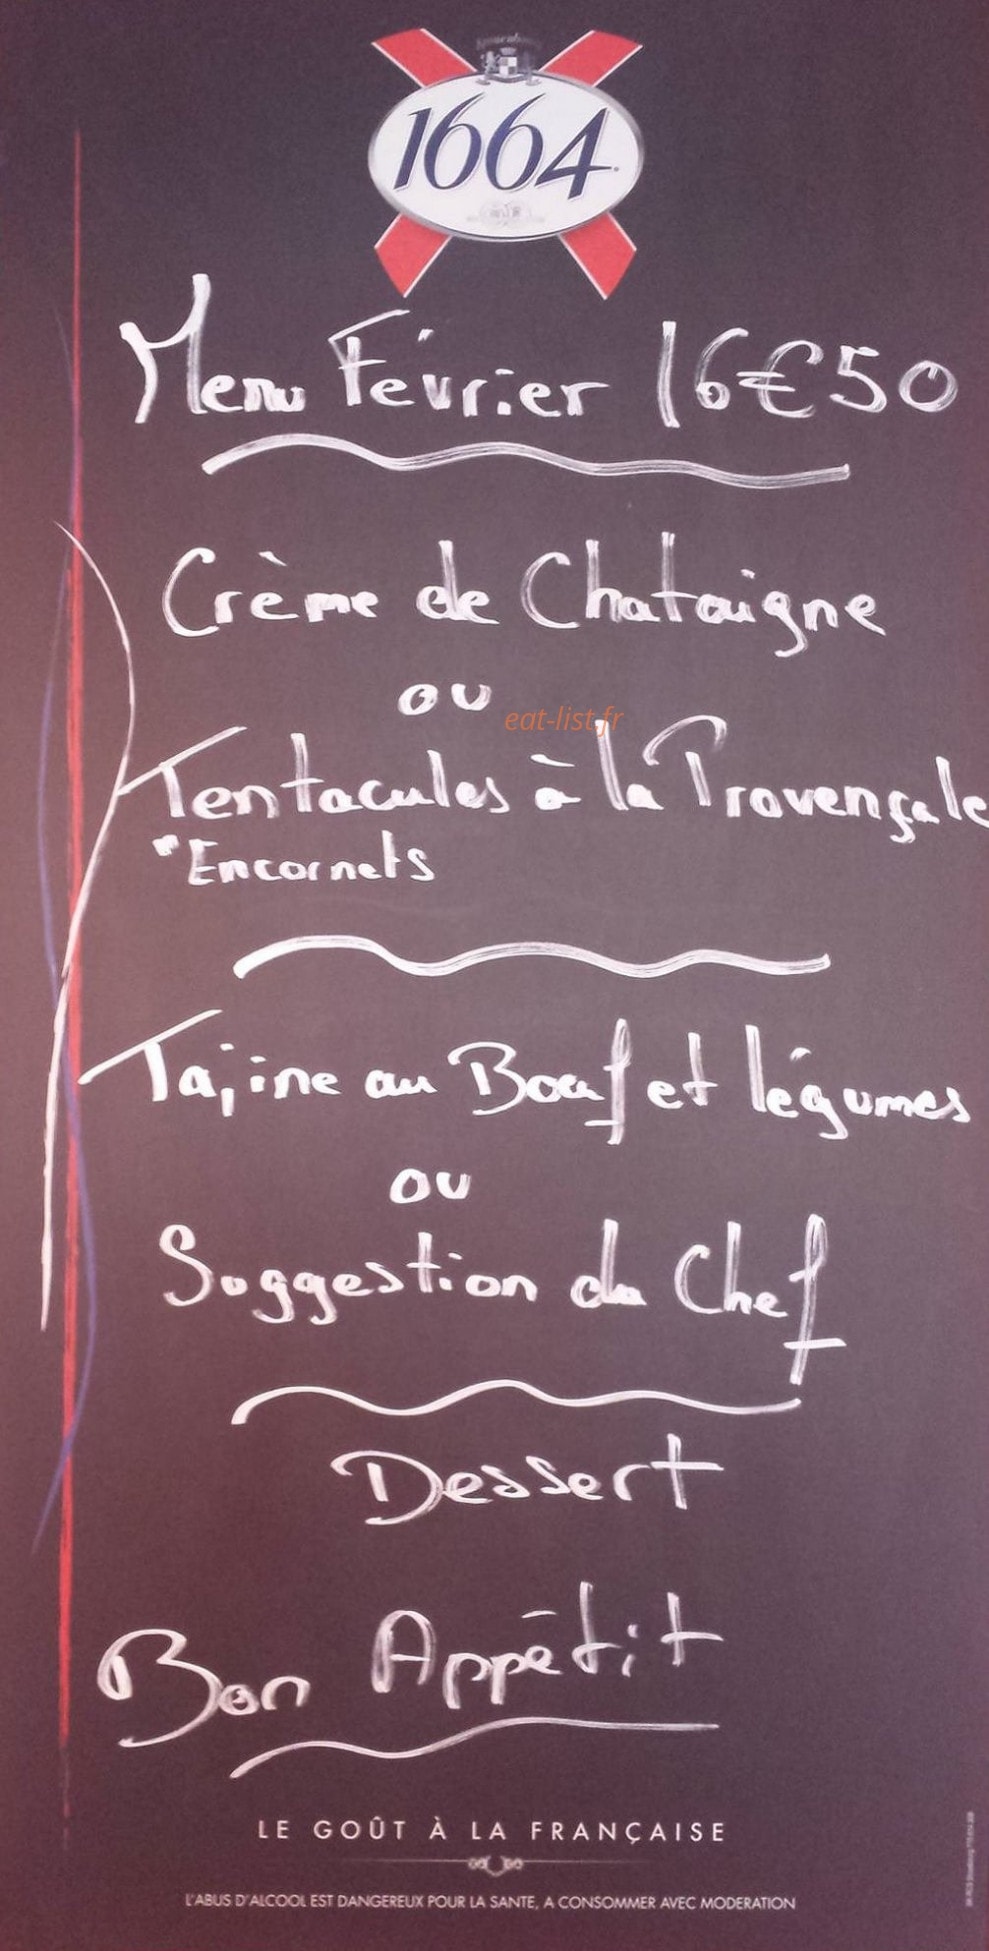 1664
Menu Février 16€50
Crème de Chataigne
ou
eat-list.fr
Tentacules à la Provençale
"Encornets
Tajine au Boeuf et légumes
ou
Suggestion du Chef
Dessert
Bon Appétit
LE GOÛT À LA FRANÇAISE
L'ABUS D'ALCOOL EST DANGEREUX POUR LA SANTE, A CONSOMMER AVEC MODERATION